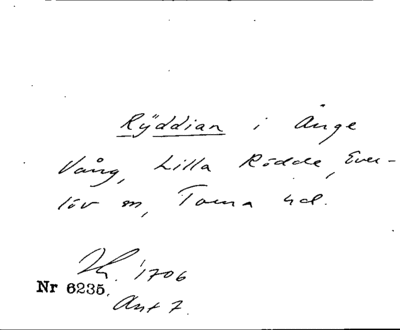 Rÿddian i Ånge
Vång, Lilla Rödde, Ever-
löv sn, Torna hd.
'1706
Nr 6235.
Ant 7.